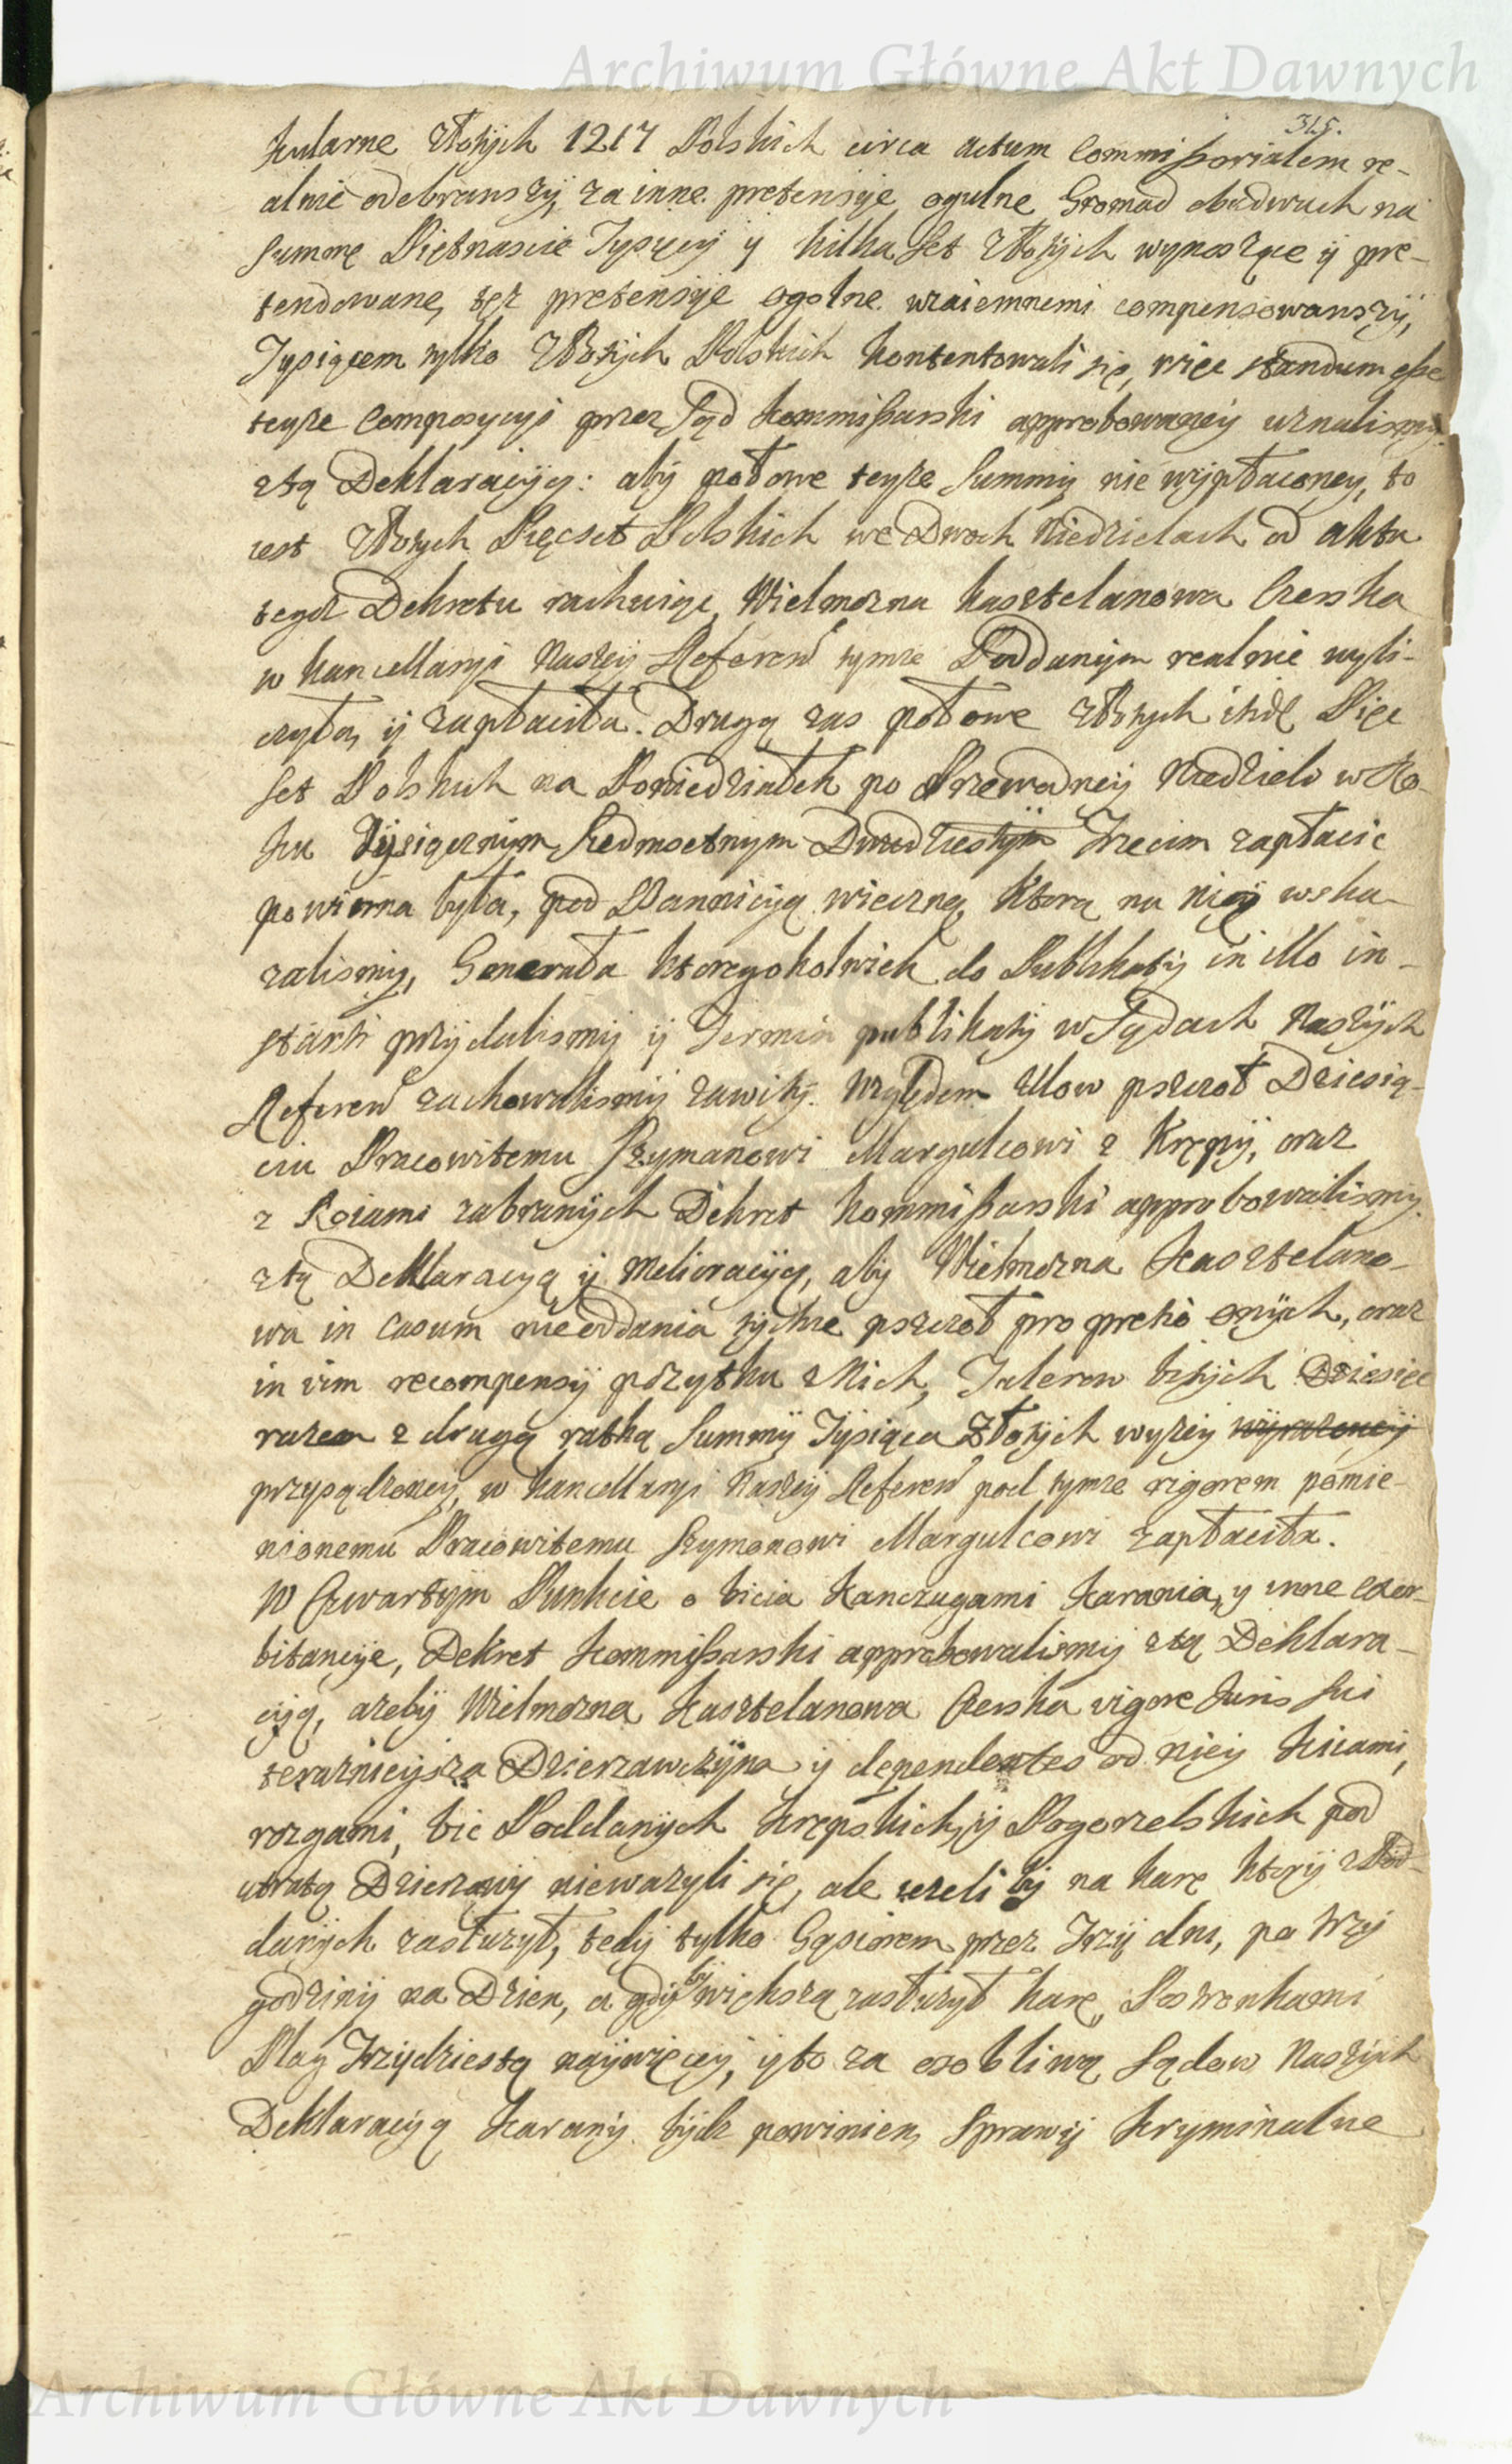 Archiwum Główne Akt Dawnych
315.
kularne Złotÿch 1217 Polskich circa actum Commißorialem re-
alnie odebranszÿ, za inne pretensÿe ogulne Gromad obudwuch na
Summę Piętnascie Tysięcÿ y kilka set Złotÿch wynoszące ÿ pre-
tendowane, też pretensÿe ogolne wzaiemnemi compensowawszÿ,
Tysiącem tylko Złotÿch Polskich kontentowali się, więc standum eße
teyże Composycyi przez Sąd Kommißarski approbowaneÿ uznalismÿ
ztą Deklaracÿą: abÿ połowe teyże Summÿ nie wÿpłaconey, to
iest Złotych Pięcset Polskich we Dwoch Niedzielach od aktu
tegoż Dekretu rachuiąc, Wielmożna Kasztelanowa Czerska
w Kancellaryi Naszeÿ Referen tymże Poddanÿm realnie wyli-
czyła, ÿ zapłaciła. Drugą zas połowe Złotych itidē Pięc
set Polskich na Poniedziałek po Przewodneÿ Niedzieli w Ro-
ku Tÿsiącznÿm Siedmsetnym Dwudziestÿm Trzecim zapłacic
powinna była, pod Bannicÿą wieczną, którą na nięÿ wska-
zalismÿ, Generała ktoregokolwiek do Publikatÿ in illo in-
stanti przÿdalismÿ ÿ Termin publikatÿ w Sądach Naszÿch
Referen zachowalismÿ zawitÿ. Względem Ulow pszczoł Dziesią-
ciu Pracowitemu Szymanowi Margulcowi z Krępÿ, oraz
z Roiami zabranÿch Dekret Kommißarski approbowalismÿ
ztą Deklaracyą ÿ Melioracÿą, abÿ Wielmożna Kasztelano-
wa in casum nieoddania tÿchże pszczoł pro pretio onÿch, oraz
in vim recompensÿ pożytku z Nich, Talerow bitÿch Dziesięc
razem z drugą ratką Summÿ Tÿsiąca Złotÿch wyżeÿ wÿrażoneÿ
przysądzoneÿ, w Kancellaryi Naszeÿ Referen pod tymże rigorem pomie-
nionemu Pracowitemu Szymonowi Margulcowi zapłaciła.
W Czwartÿm Punkcie o bicia Kanczugami karania, y inne exor-
bitancÿe, Dekret Kommißarski approbowalismÿ ztą Deklara-
cÿą, azebÿ Wielmożna Kasztelanowa Czerska vigore Juris sui
teraznieÿsza Dzierzawczÿna ÿ dependentes od nieÿ kiiami,
rozgami, bic Poddanÿch Krępskich, ÿ Pogorzelskich pod
utratą Dzierzawÿ nieważyli się, ale ieżeli bÿ na karę ktorÿ z Pod-
danÿch zasłużył, tedÿ tylko Gąsiorem przez Trzÿ dni, po trzÿ
godzinÿ na Dzien, a gdÿ bÿ większą zasłużył karę, Postronkami
Plag Trzydziestą naÿwięceÿ, ÿ to za osobliwą Sądow Naszÿch
Deklaracÿą karanÿ bÿdz powinien, Sprawÿ kryminalne
Archiwum Główne Akt Dawnych